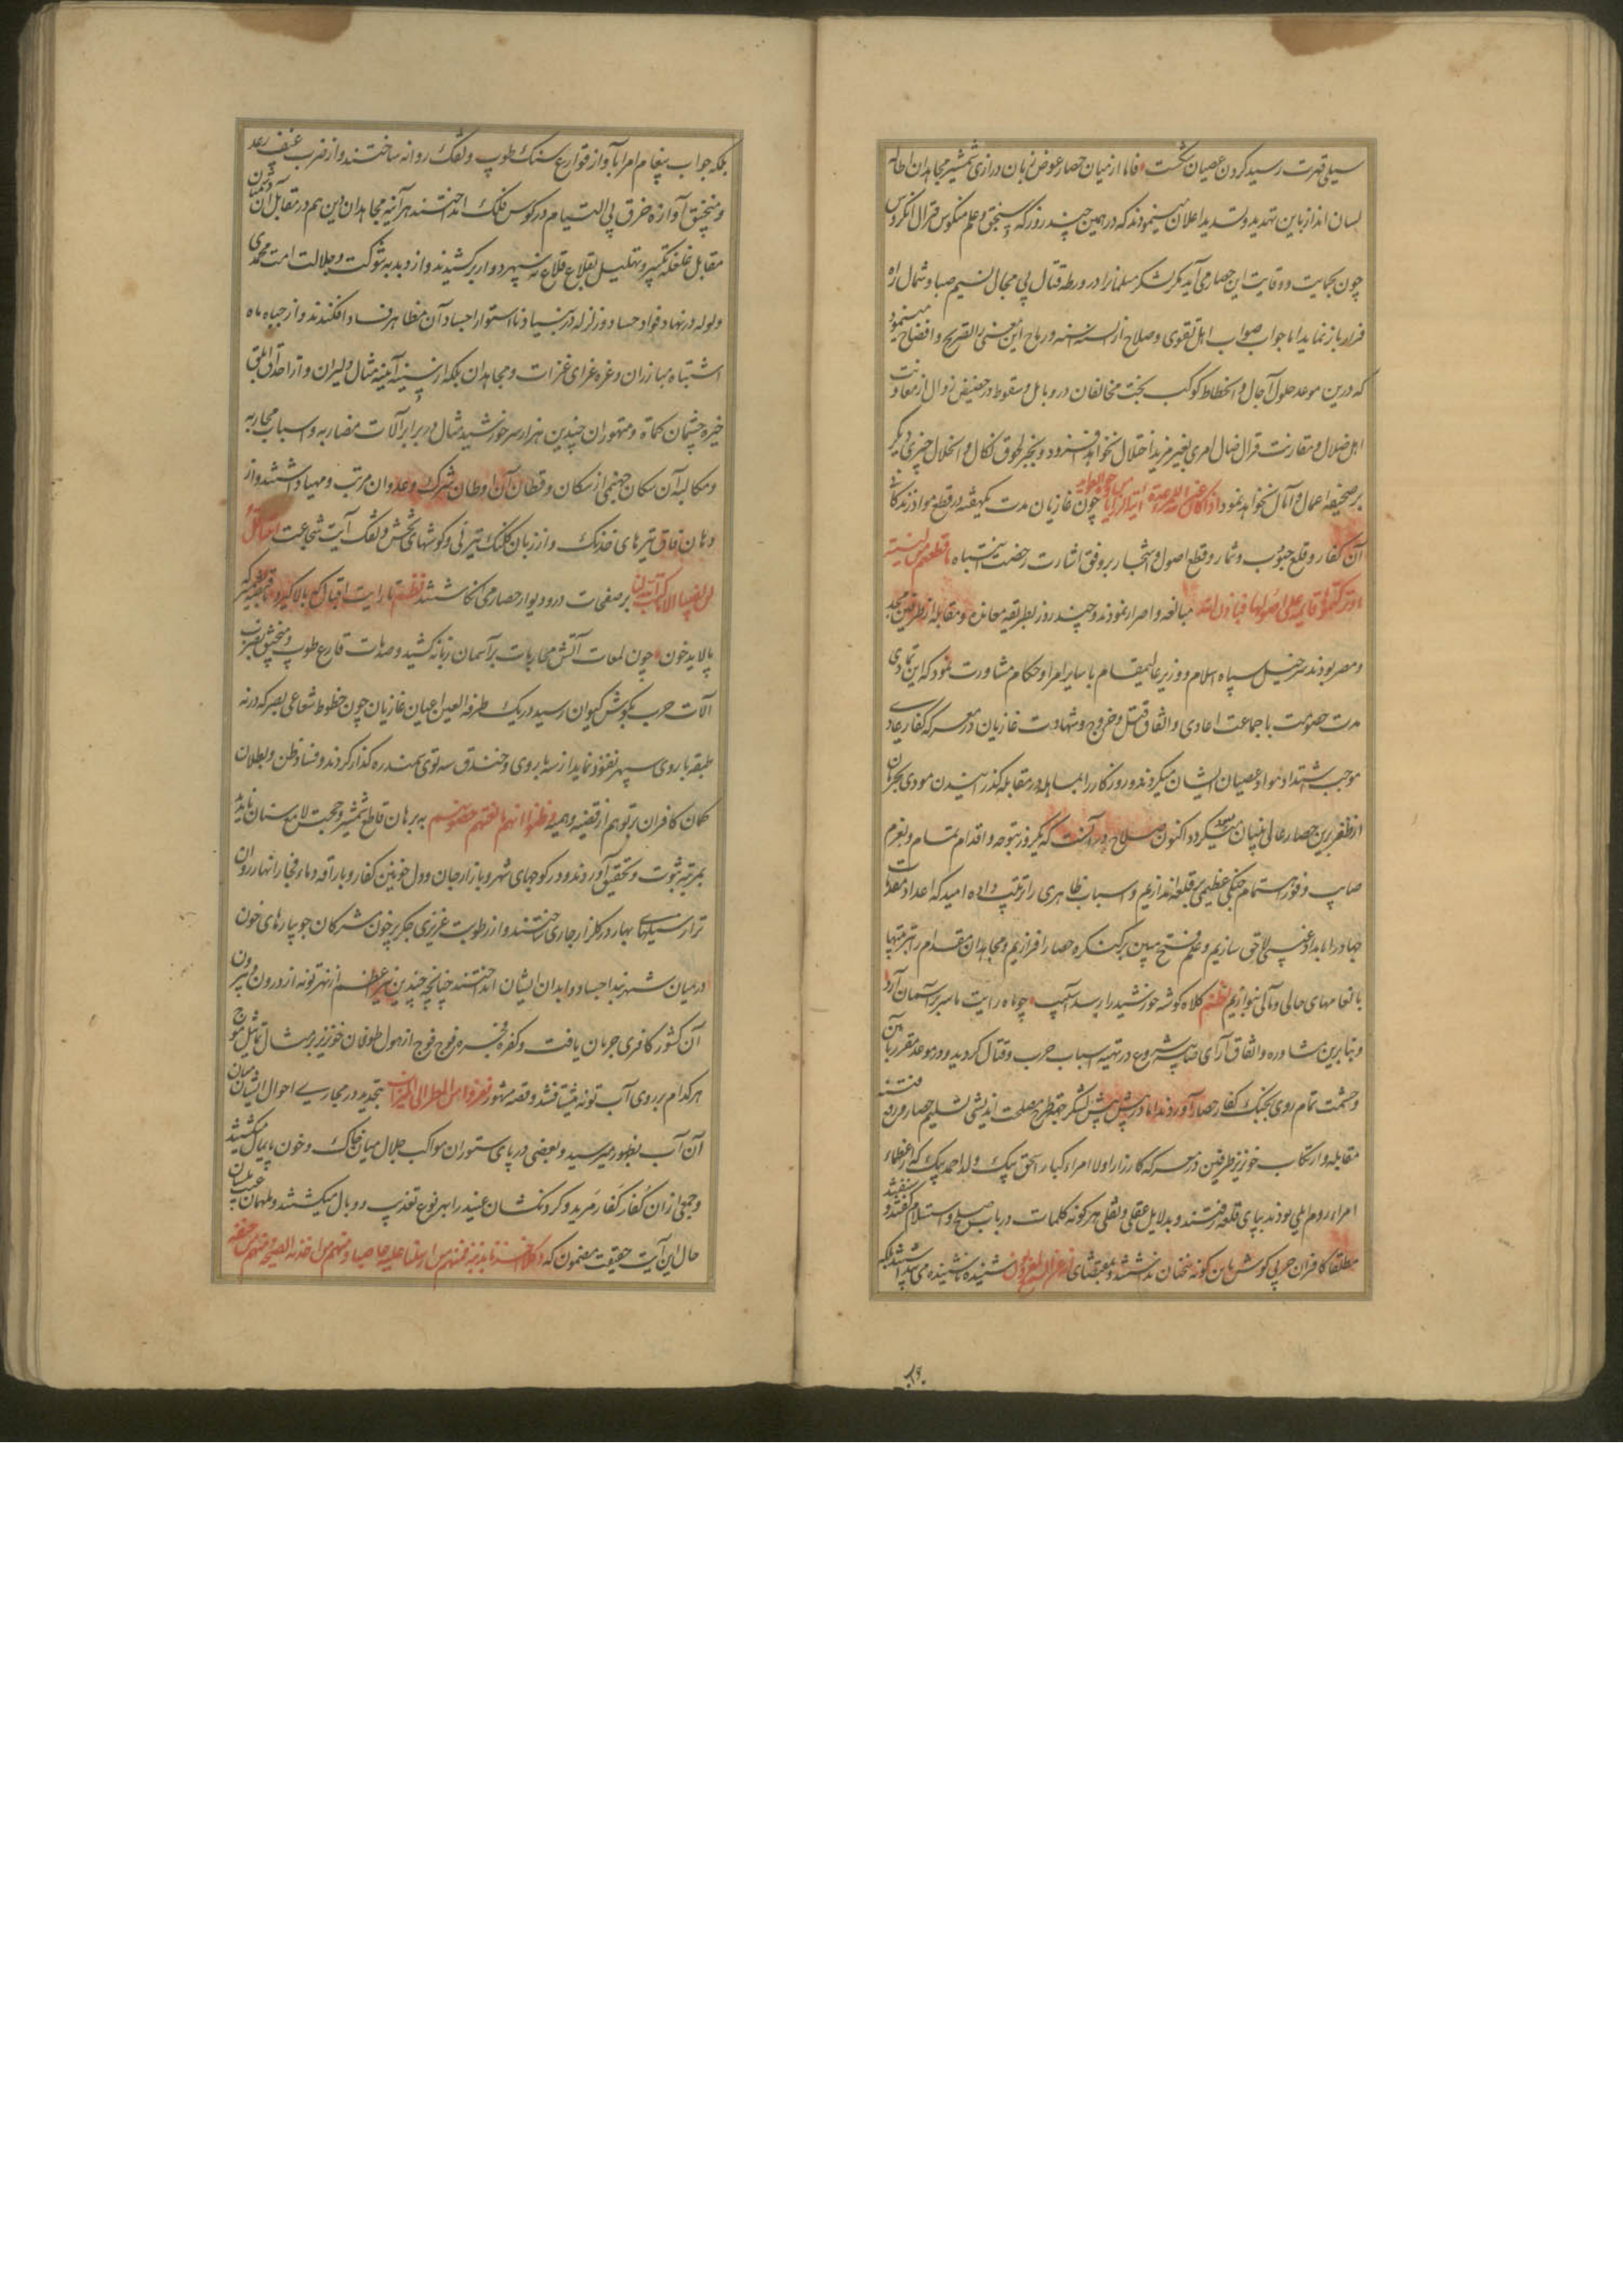 سیلی قهرت رسید کردن عصیان شکست فاما از میان حصار عوض زبان درازی شمشیر مجاهدان اطاله
لسان انذار باین تهدید و تشدید اعلان مینمودند که در همین چند روز که سنجق و علم منکوس قرال انکروس
چون بحمایت و وقایت این حصار می آید مکر لشکر مسلمانرا در ورطه قتال بی مجال نسیم صبا و شمال راه
فرار باز نماید اما جواب صواب اهل تقوی و صلاح از السنه اسنه و رماح این معنی را بالصریح و افصاح مینمود
که درین موعد حلول آجال و انحطاط کوکب بخت مخالفان در وبال و سقوط در حضیض زوال از معاونت
اهل ضلال و مقارنت قرال ضال امری بغیر مزید اختلال نخواهد افزود و بجز لحوق نکال و انحلال چیزی دیگر
بر صحیفه اعمال و آمال نخواهد نمود چون غازیان مدت یکهفته در قطع مواد زندکانی
آن کفار و قلع حبوب و ثمار و قطع اصول و اشجار بر وفق اشارت رخصت انتباه ما قطعتم من لینة
او ترکتموها قایمة علی اصولها فباذن الله مبالغه و اصرار نمودند و چند روز بطریقه محاربه و مقابله از طرفین مجد
و مصر بودند سرخیل سپاه اسلام و وزیر عالیمقام با سایر امرا و حکام مشاورت نمود که این تمادی
مدت خصومت با جماعت اعادی و اتفاق قتل و خروج و شهادت غازیان در معرکه کفار عادی
موجب اشتداد مواد عصیان ایشان میکردد و روزکار را بمساهله در مقابله کذرانیدن مودی بحرمان
از ظفر برین حصار عالی بنیان میکردد اکنون صلاح در آنست که یکروز بتوجه و اقدام تمام و بعزم
صایب و فور اهتمام جنکی عظیمی بر قلعه اندازیم و اسباب ظاهری را ترتیب داده امید که اعداد معدات
جهاد را بامداد غیبی لاحق سازیم و علم فتح مبین بر کنکره حصار افرازیم و مجاهدان مقدام را بمرتبتها
با انعامهای حالی و مآلی بنوازیم نظم کلاه کوشه خورشید را رسد آسیب چو ماه رایت ما سر بر آسمان آرد
و بنابرین مشاوره و اتفاق آرای صایبه شروع در تهیه اسباب حرب و قتال کردید و در موعد مقرر با آن
وحشمت تمام روی بجنک کفار حصار آوردند اما در پیش پیش لشکر جهة طرح مصلحت اندیشی تسلیم حصار و رفع فتنه
مقابله و ارتکاب خونریز طرفین در معرکه کارزار اولا امراء کبار اسحق بیک و لد احمد بیک که از عظماء
امراء روم ایلی بودند بپای قلعه رفتند و بدلایل عقلی و نقلی هر کونه کلمات در باب صلح و استسلام کفتند و شنفتند
مطلقا کافران حربی کوش باین کونه سخنان نداشتند و بمقتضای انهم عن السمع لمعزولون شنیده ناشنیده می انکاشتند بلکه
بلکه جواب پیغام امرا بآواز قوارع سنک طوپ و تفنک روانه ساختند و از ضرب عنیف رعد
و منجنیق آوازه خرق بی التیام در کوس فلک انداختند هر آینه مجاهدان دین هم در مقابل آن دشمنان
مقابل غلغله تکبیر و تهلیل بقلاع قلاع نه سپهر دوار برکشیدند و از دبدبه شوکت و جلالت امت محمدی
ولوله در نهاد فواد حساد و زلزله در بنیاد نااستوار اجساد آن مظاهر فساد افکندند و از جباه ماه
اشتباه مبارزان و غره غرای غزات و مجاهدان بلکه از سینه آیینه مثال دلیران و از احداق ابلق
خیره چشمان کماة و متهوران چندین هزار سر خورشید مثال در برابر آلات مضاربه و اسباب محاربه
و مکالبه آن سکان جهنمی از سکان و قطان آن اوطان شرک و عدوان مرتب و مهیا داشتند و از
دهان فاق تیرهای خدنک و از زبان کلنک تیر نی و کوشهای تخش و تفنک آیت شجاعت
بر صفحات در و دیوار حصار می نکاشتند نظم تا رایت اقبال که بالا کیرد
پالاید خون چون لمعات آتش محاربات بر آسمان زبانه کشید و صدمات قارع طوپ و منجنیق بضرب
آلات حرب بکوش کیوان رسید در یک طرفة العین اعیان غازیان چون خطوط شعاعی بصر که در نه
طبقه باروی سپهر نفوذ نماید از سه باروی و خندق سه توی سمندره کذار کردند و فساد ظن و بطلان
کمان کافران بر توهم از قضیه وهمیه و ظنوا انهم مانعتهم حصونهم به برهان قاطع شمشیر و حجت لامع سنان باید
بمرتبه ثبوت و تحقیق آوردند و در کوچهای شهر و بازار جان و دل خونین کفار و باراقه دماء فجار انهار روان
تر از سیلهای بهار در کلزار جاری ساختند و از رطوبت غریزی جکر پر خون مشرکان جویبارهای خون
در میان شهربند اجساد و ابدان ایشان انداختند چنانچه چندین نهر عظیم از نهر تونه از درون و بیرون
آن کشور کافری جریان یافت و کفره فجره فوج فوج از هول طوفان خونریز بر مثال تماثیل موج
هر کدام بر روی آب تونه میشتافتند و قصه مشهور بتجدید در مجاری احوال ایشان
آن آب بظهور میرسید و بعضی در پای ستوران مواکب جلال میان خاک و خون پایمال میکشتند
و جمعی ازان کفار کفار مرید و کردنکشان عنید را بهر نوع تعذیب و وبال میکشتند و ملهمان غیب بلسان
حال این آیت حقیقت مضمون که فکلا اخذنا بذنبه فمنهم من ارسلنا علیه حاصبا و منهم من اخذته الصیحة و منهم من خسفنا